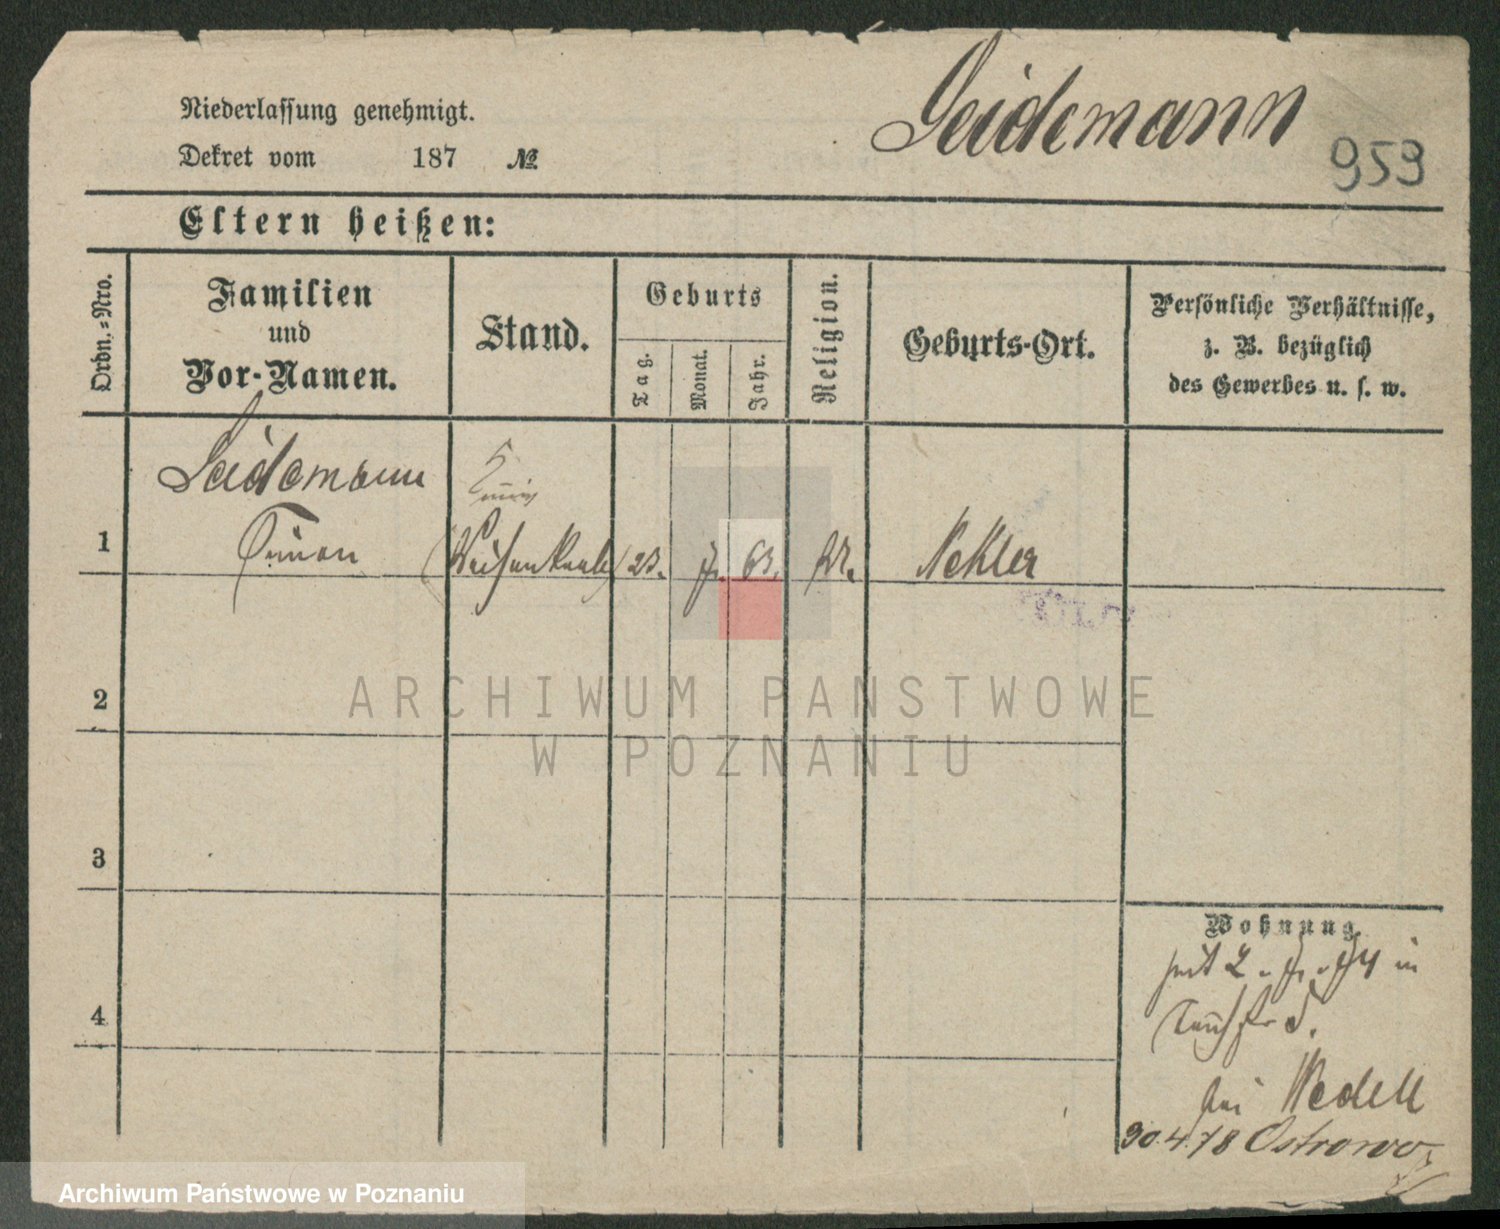 Niederlassung genehmigt.
Dekret vom 187 №
Seidemann
959
Eltern heißen:
Ordn.-Nro.
Familien
und
Vor-Namen.
Stand.
Geburts
Tag.
Monat.
Jahr.
Religion.
Geburts-Ort.
Persönliche Verhältnisse,
z. B. bezüglich
des Gewerbes u. s. w.
Seidemann
1
Simon
(Waisenknabe)
23.
63.
Nekler
2
ARCHIWUM PAŃSTWOWE
W POZNANIU
3
Wohnung
seit 2. in
4
bei Wedell
30.4.78 Ostrowo
Archiwum Państwowe w Poznaniu